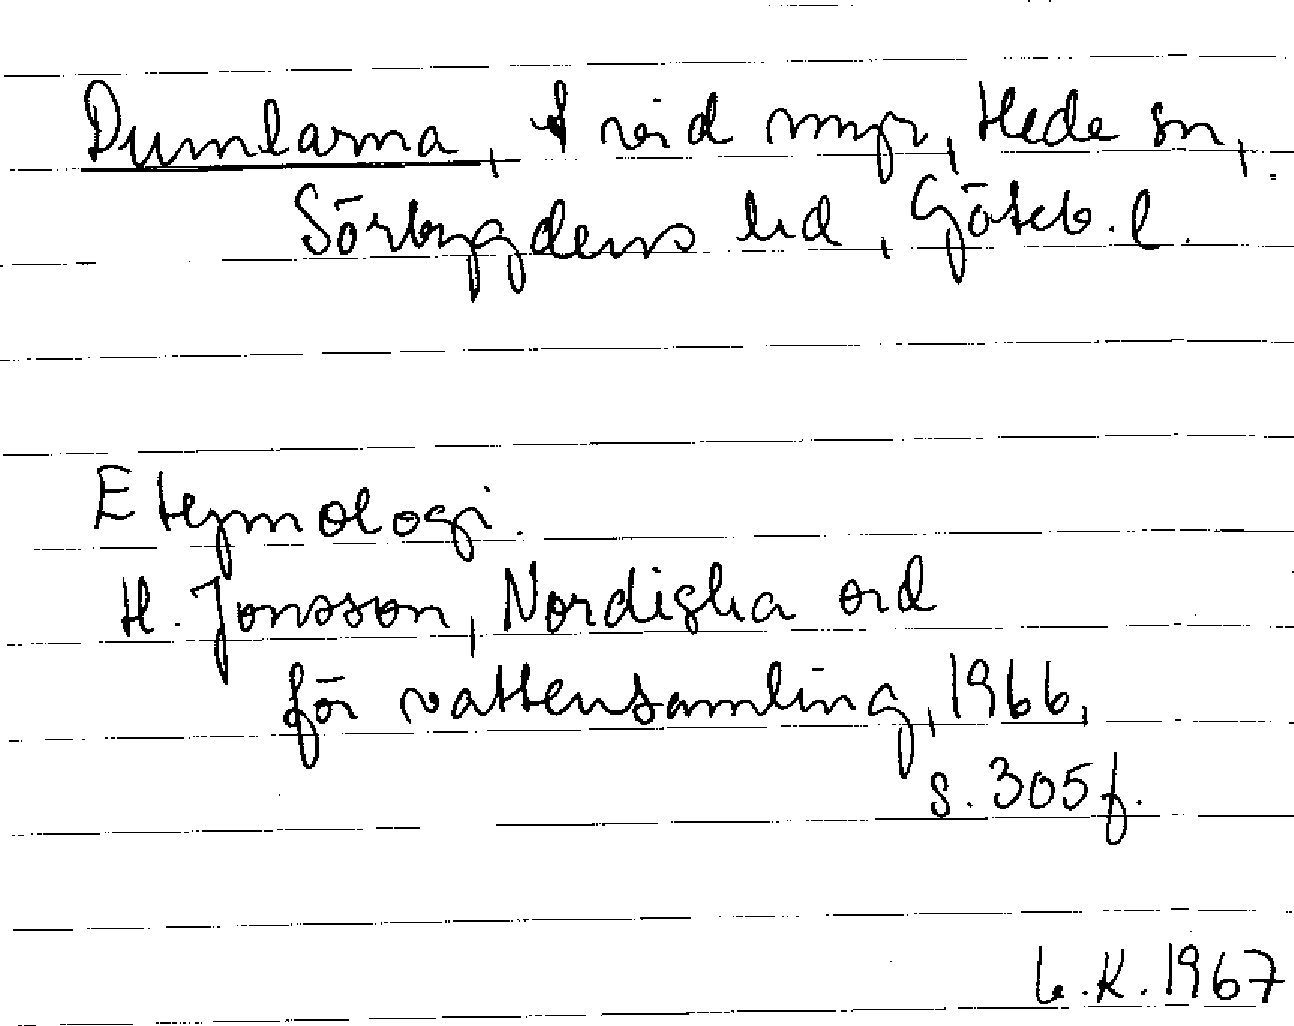 Dumlarna, t vid myr, Hede sn,
Sörbygdens hd, Göteb. l.
Etymologi.
H. Jonsson, Nordiska ord
för vattensamling, 1966,
s. 305 f.
L.K. 1967